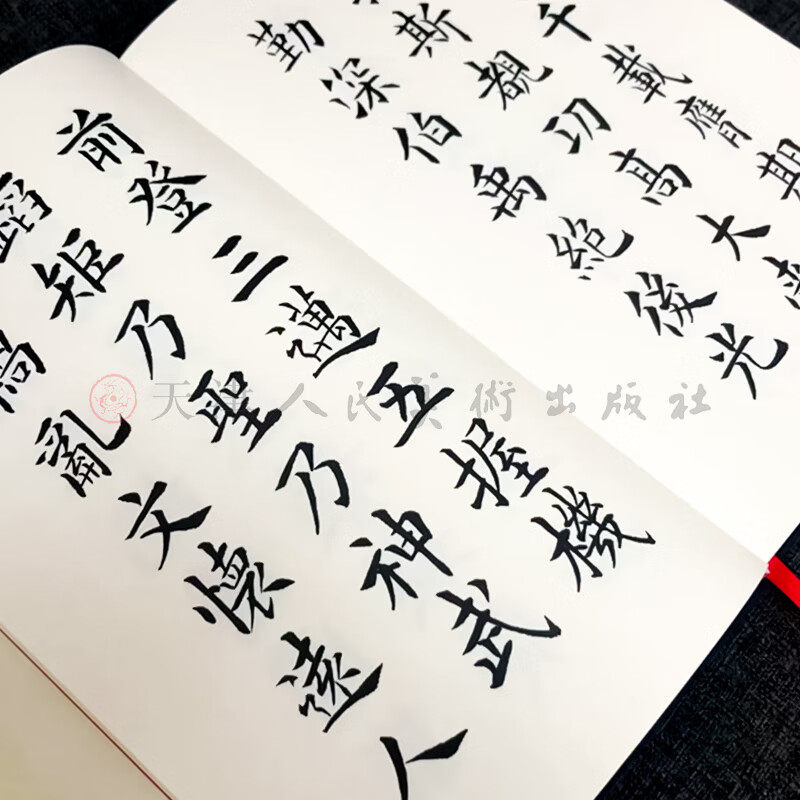 千載膺期
斯覯功高大
勤深伯禹絶後光
前登三邁五握機
蹈矩乃聖乃神武
亂文懷遠人
天津人民美術出版社